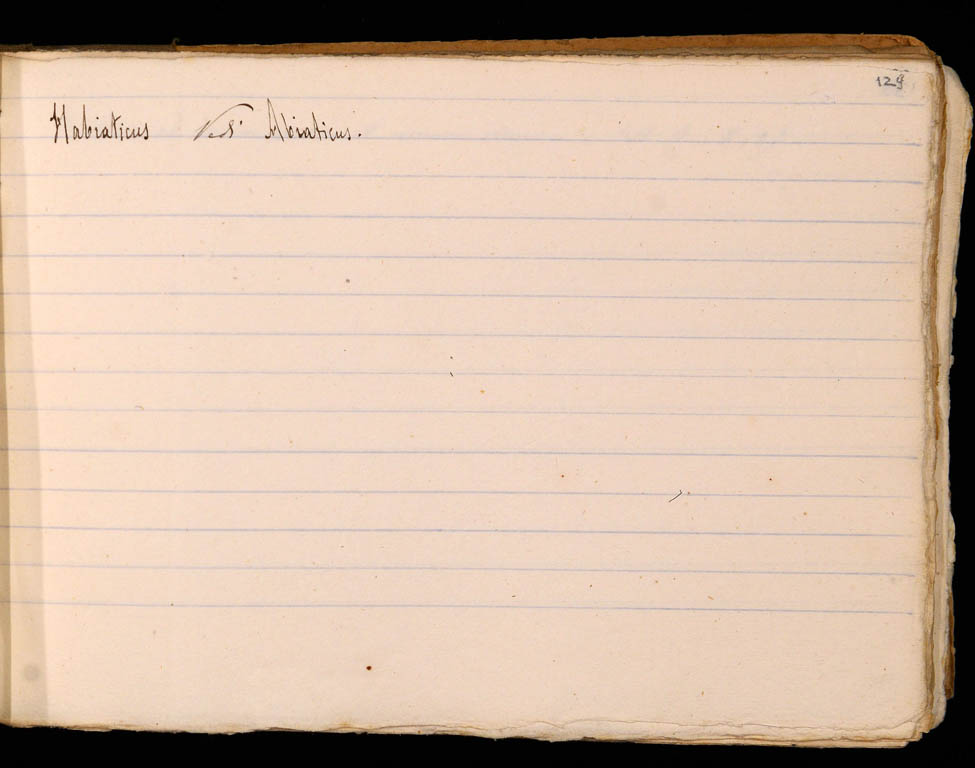 129
Habiaticus Vedi Abiaticus.